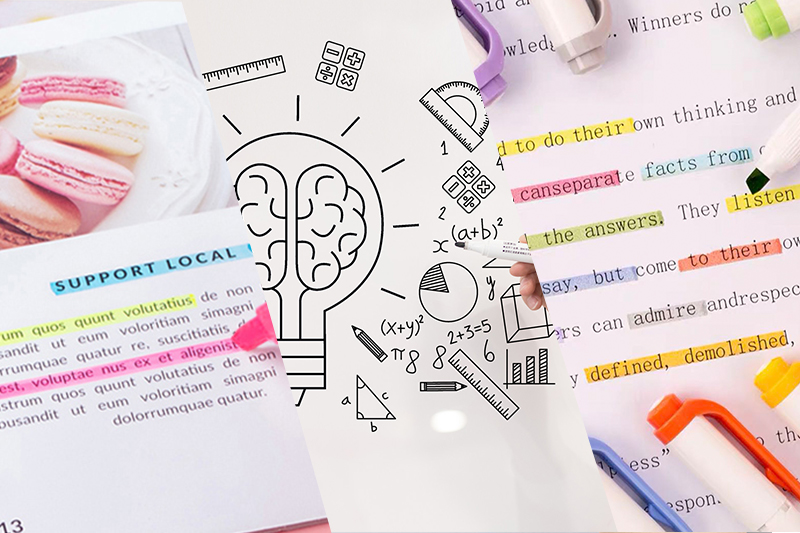 SUPPORT LOCAL
rum quos quunt volutatius de non
sandit ut eum voloritiam simagni
rrumquae quatur re, suscitiatiis
est, voluptae nus ex et aligenis
strum quos quunt volutatius de non
ousandit ut eum voloritiam simagni
dolorrumquae quatur.
13
1
4
x² (a+b)²
y
(x+y)²
2+3=5
π 8 8 6
a c
b
Winners do
d to do their own thinking and
canseparate facts from
the answers. They listen
say, but come to their own
ers can admire andrespec
y defined, demolished,